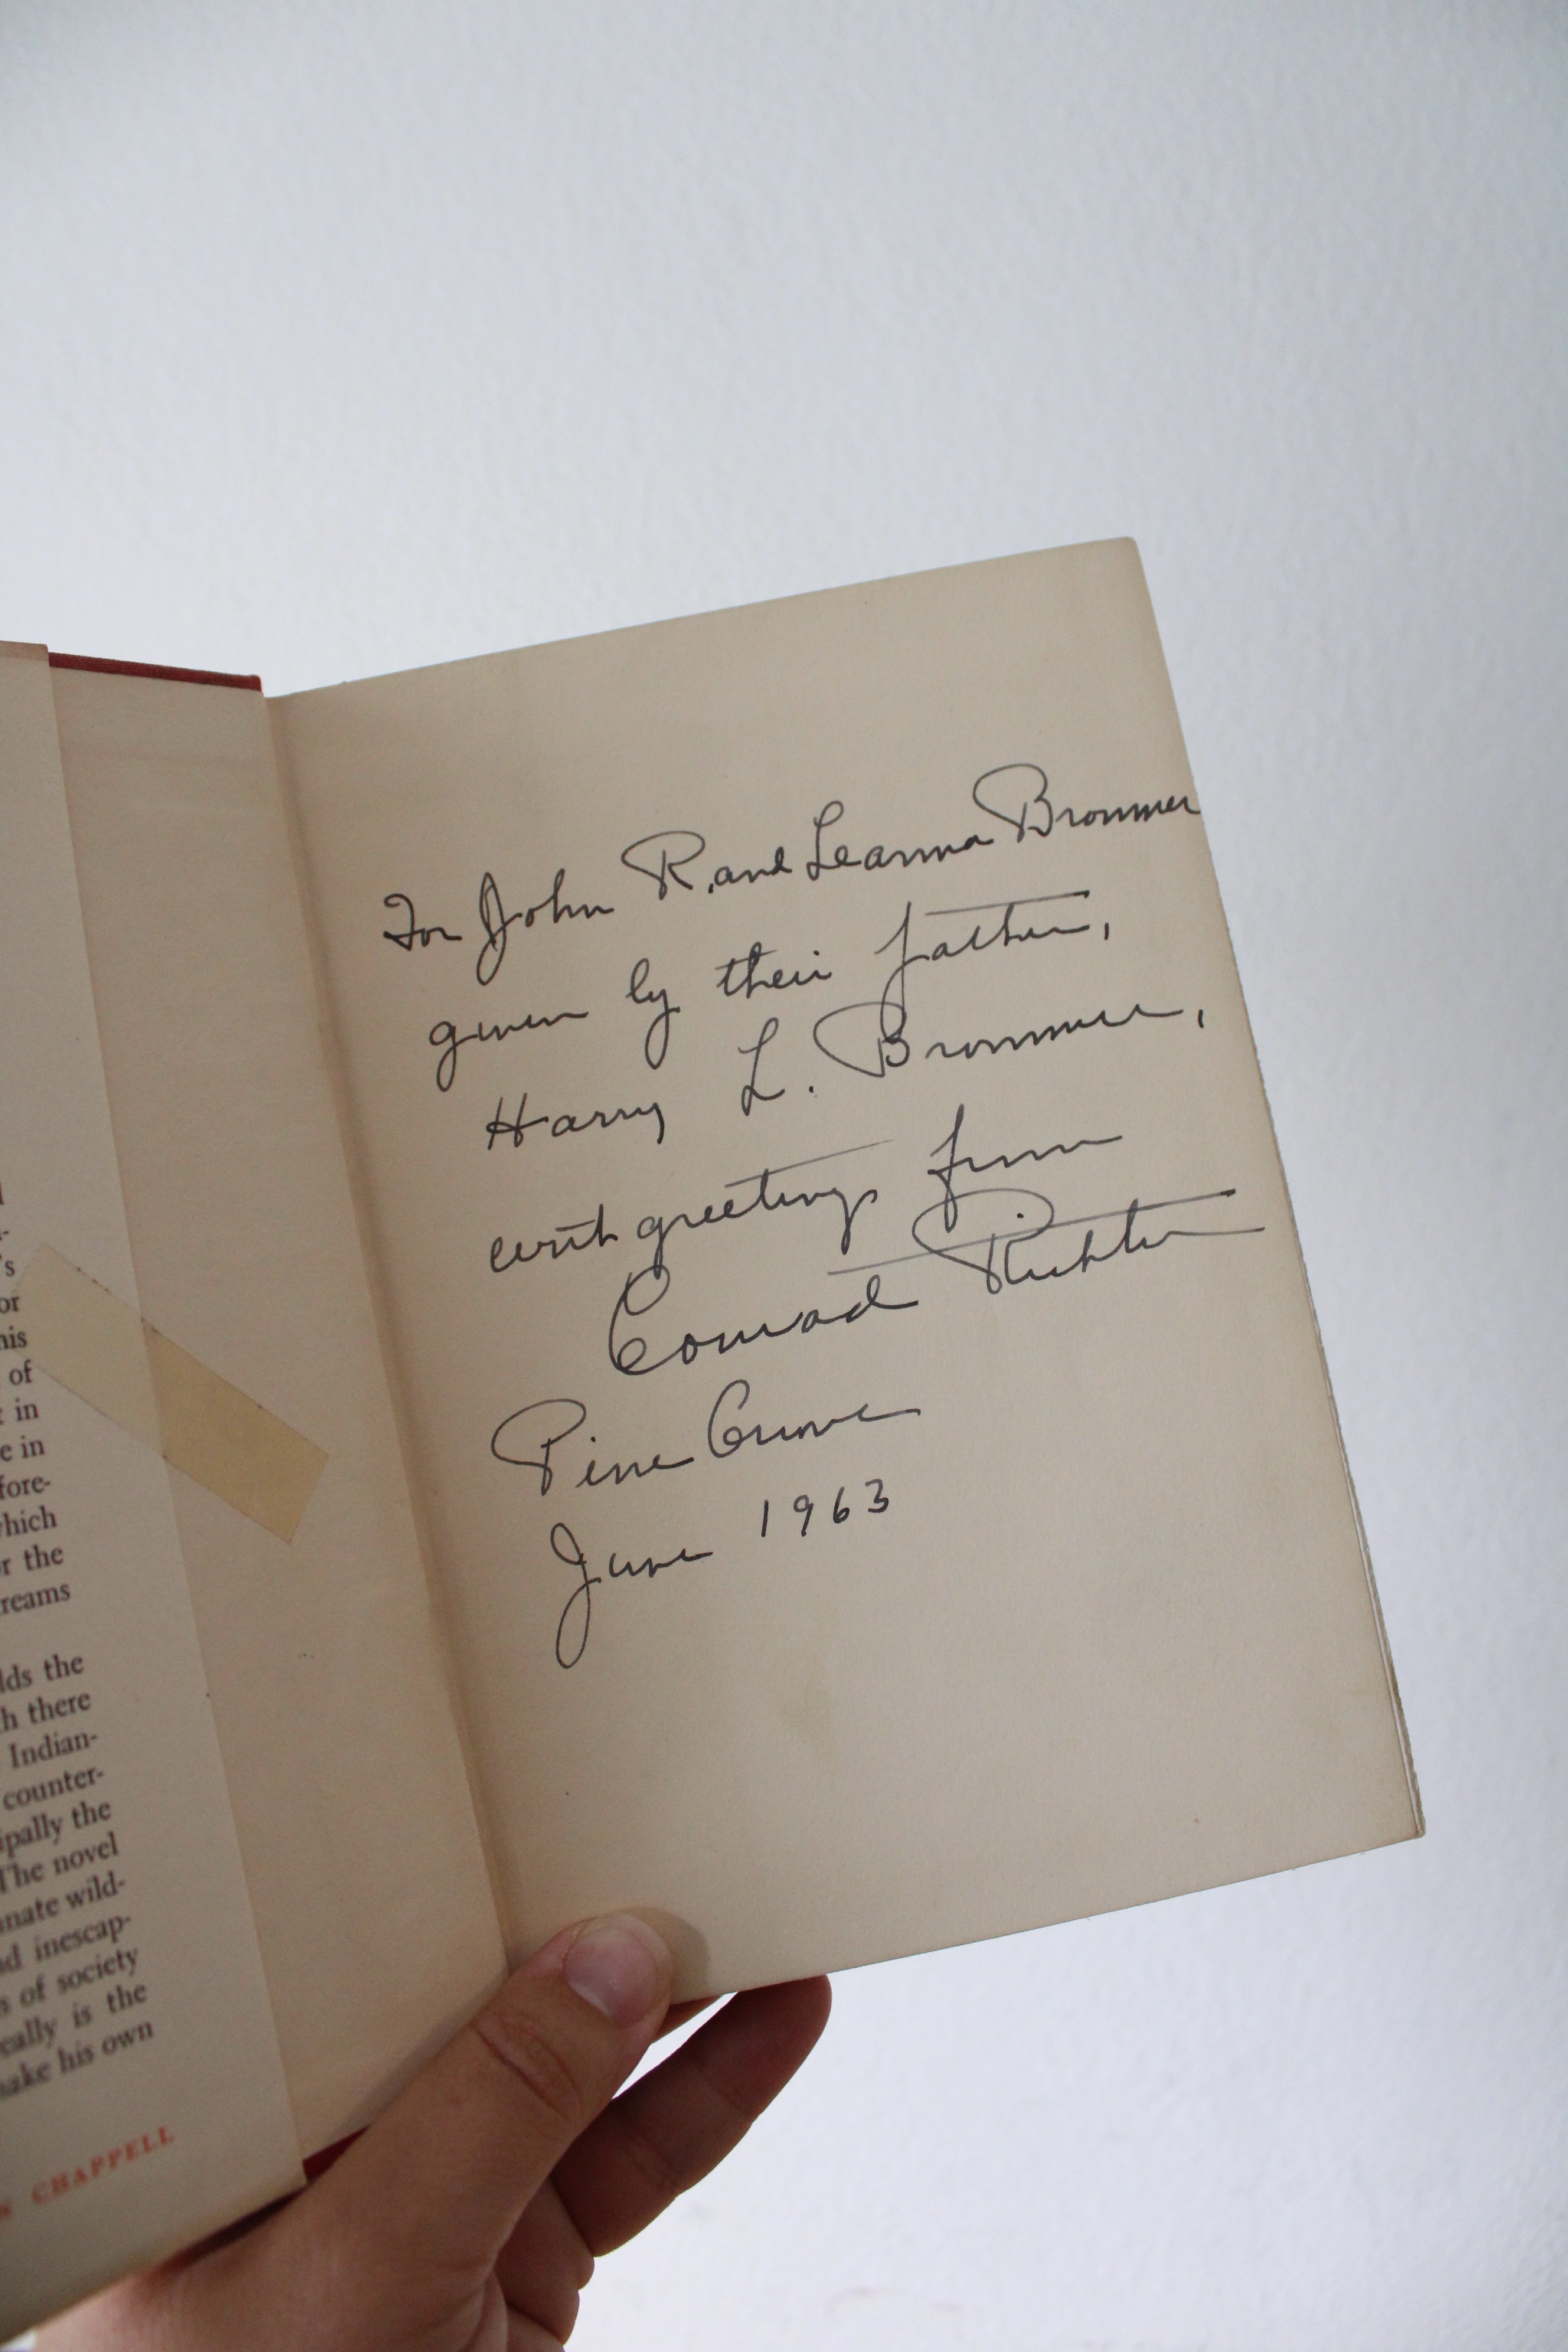 's
or
his
of
t in
e in
fore-
which
or the
reams
lds the
h there
Indian-
counter-
ipally the
The novel
nate wild-
d inescap-
s of society
eally is the
ake his own
N CHAPPELL
For John R. and Leanna Brommer
given by their father,
Harry L. Brommer,
with greetings from
Conrad Richter
Pine Grove
June 1963